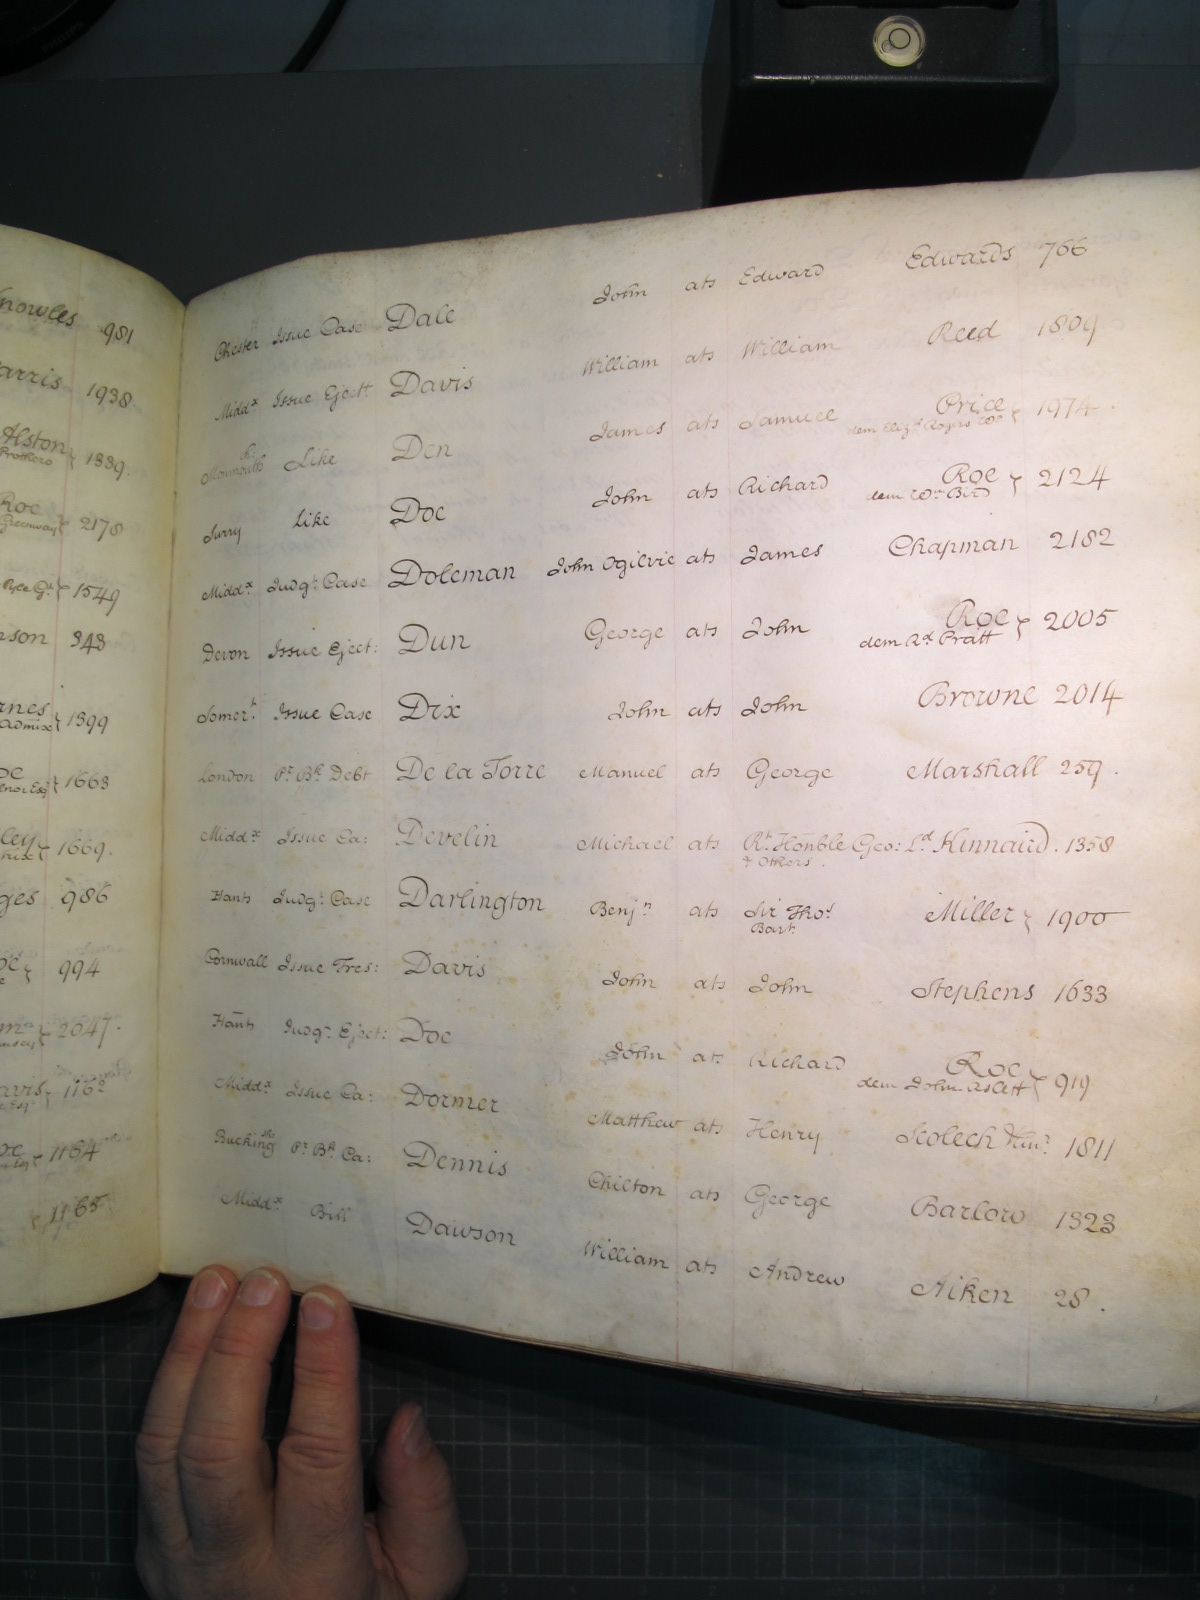 nowles 981
arris 1938.
Alston
Prothero 1339.
Roe
Greenway 2178
1549
son 343
rnes
admix 1399
oe 1663
ley 1669.
ges 986
994
2047.
avis 1162
1164
1165
Chester Issue Case Dale John ats Edward Edwards 766
Middx Issue Ejectt Davis William ats William Reed 1809
Monmouth Like Den James ats Samuel Price
dem Elizth Rogers Wo 1974
Surry Like Doe John ats Richard Roe
dem Wm Bird 2124
Middx Judgt Case Doleman John Ogilvie ats James Chapman 2182
Devon Issue Eject: Dun George ats John Roe
dem Rd Pratt 2005
Somert Issue Case Dix John ats John Browne 2014
London Pr Bk Debt De la Torre Manuel ats George Marshall 259.
Middx Issue Ca: Develin Michael ats Rt Honble Geo: Ld Kinnaird. 1358
& Others.
Hants Judgt Case Darlington Benjn ats Sir Thos Miller 1900
Bart
Cornwall Issue Tres: Davis John ats John Stephens 1633
Hants Judgt Eject: Doe John ats Richard Roe
dem John Aslett 919
Middx Issue Ca: Dormer Matthew ats Henry 1811
Bucking Pr Bk Ca: Dennis Chilton ats George Barlow 1323
Middx Bill Dawson William ats Andrew Aiken 28.